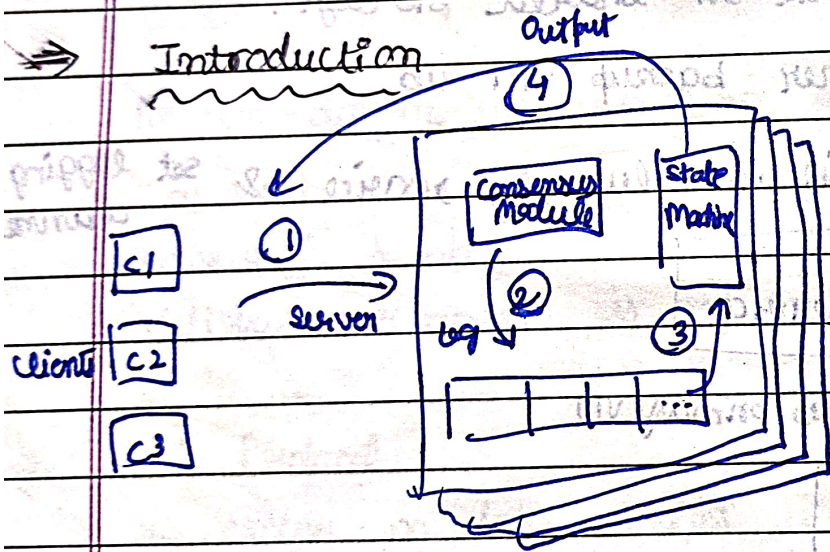 Introduction
Output
4
Consensus
Module
State
Machine
1
C1
server
2
log
3
clients
C2
...
C3